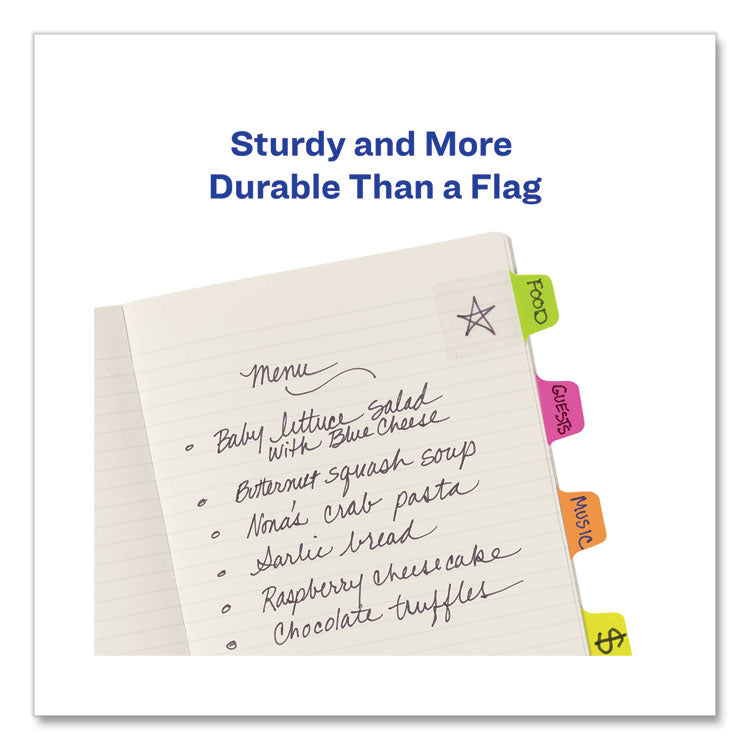 Sturdy and More
Durable Than a Flag
FOOD
Menu
GUESTS
Baby lettuce salad
with Blue Cheese
Butternut squash soup
MUSIC
Nona's crab pasta
Garlic bread
Raspberry cheesecake
Chocolate truffles
$